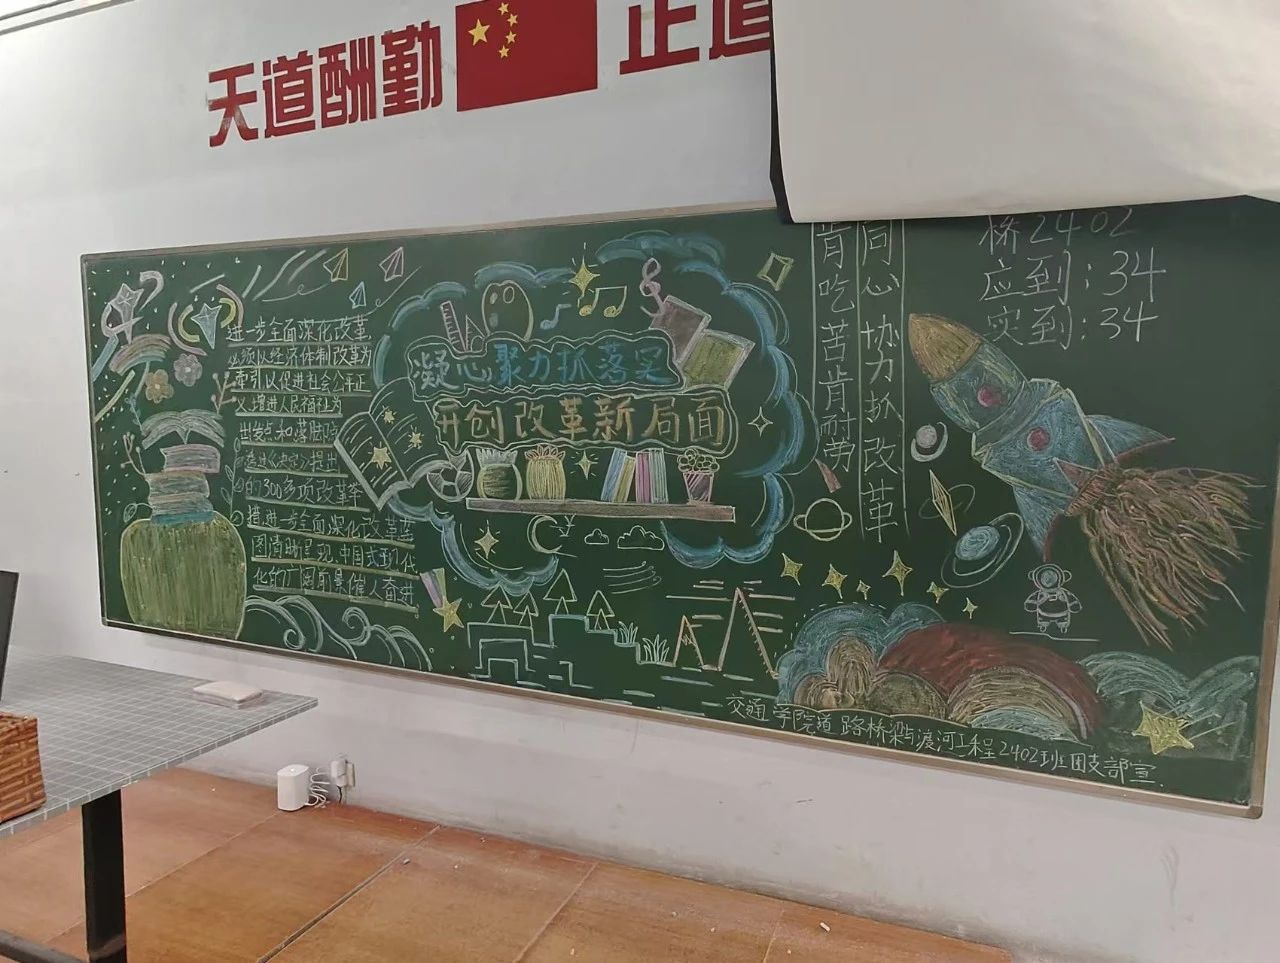 天道酬勤
正道
进一步全面深化改革
必须以经济体制改革为
牵引以促进社会公平正
义增进人民福祉为
出发点和落脚点
的300多项改革举
措进一步全面深化改革蓝
图清晰呈现中国式现代
化的广阔前景催人奋进
凝心聚力抓落实
开创改革新局面
同心协力抓改革
肯吃苦肯耐劳
桥2402
应到:34
实到:34
交通学院道路桥梁与渡河工程2402班团支部宣